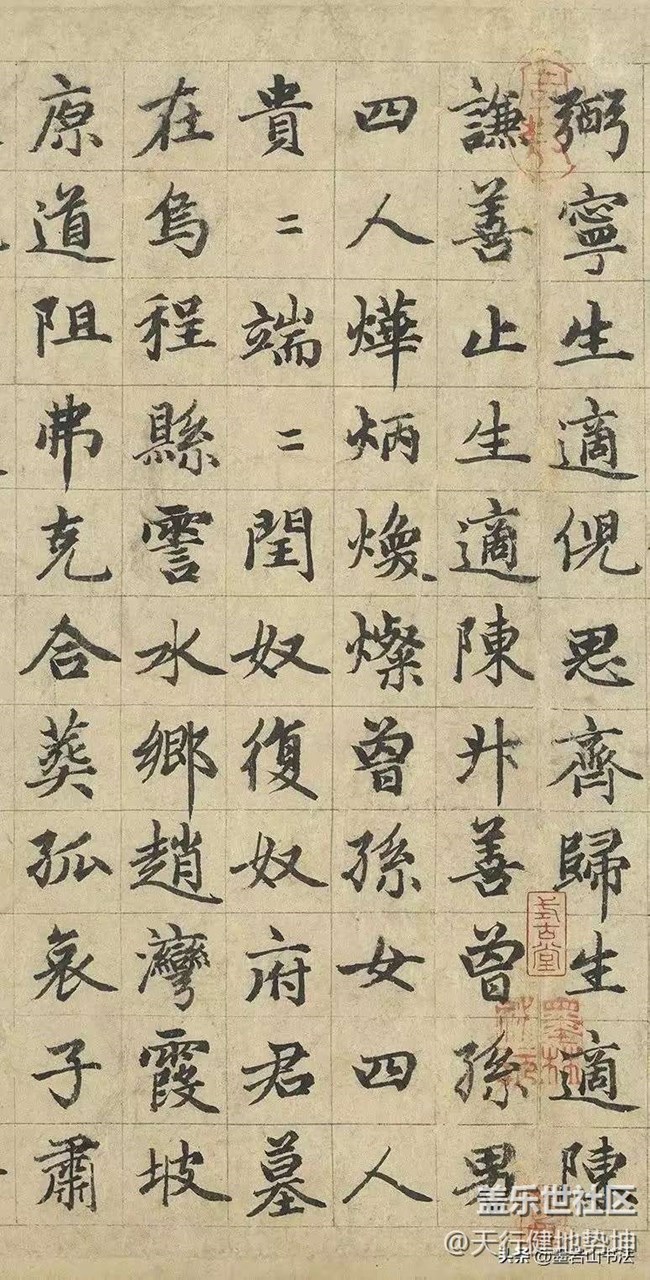 弼寧生適倪思齊歸生適陳
謙善止生適陳廾善曾孫男
四人燁炳煥燦曾孫女四人
貴二端二閏奴復奴府君墓
在烏程縣霅水鄉趙灣霞坡
原道阻弗克合葬孤哀子肅
式古堂
盖乐世社区
@天行健地势坤
头条@墨若山书法